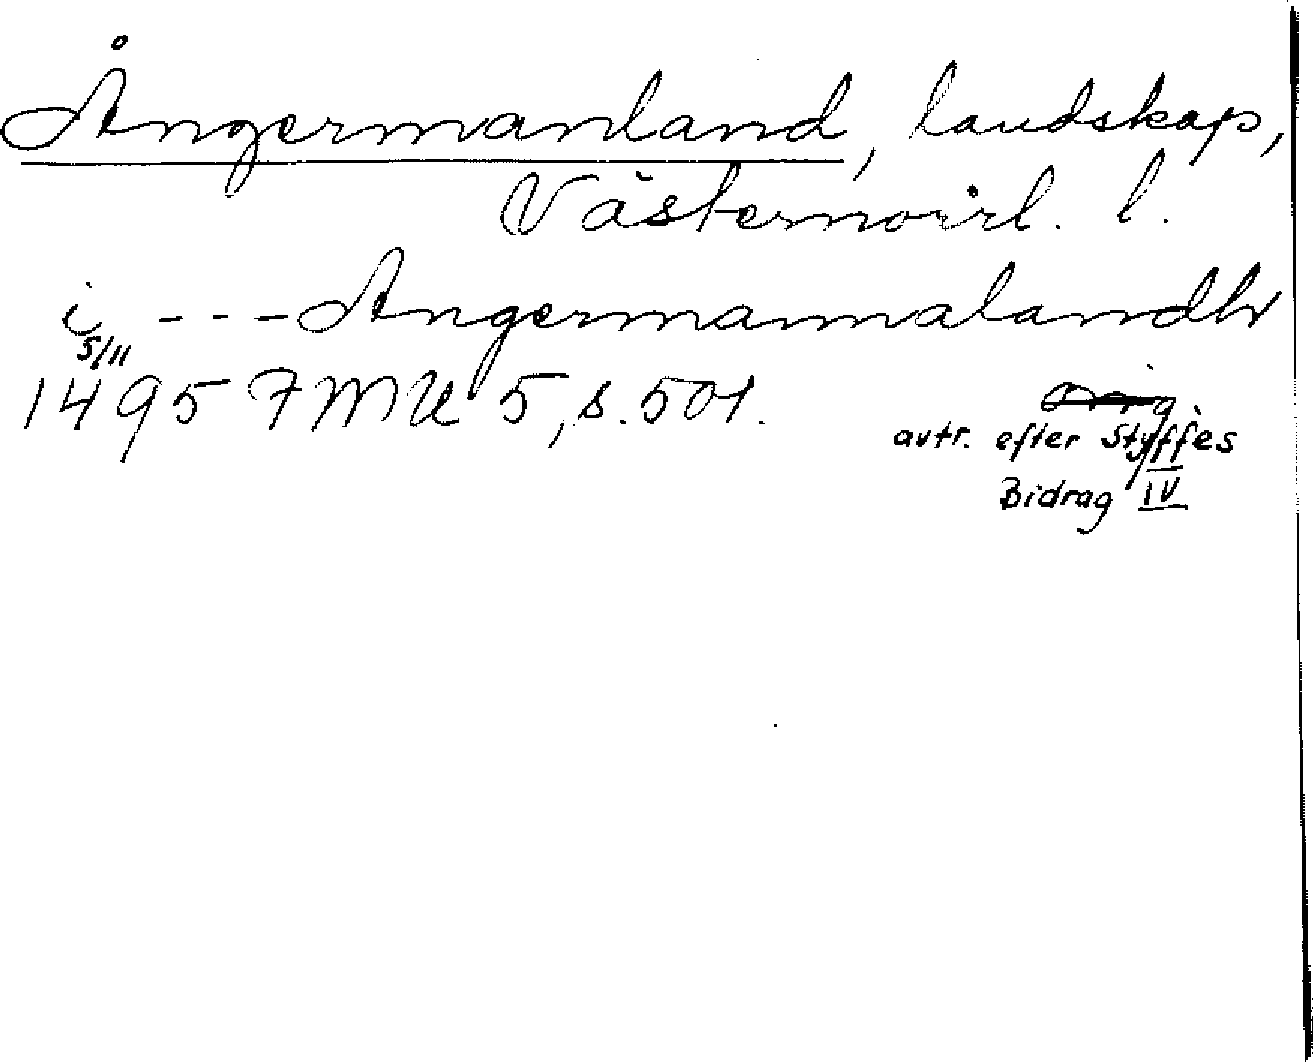 Ångermanland, landskap,
Västernorrl. l.
i --- Angermannalandh
5/11
1495 FMU 5, s. 501.
avtr. efter Styffes
Bidrag IV